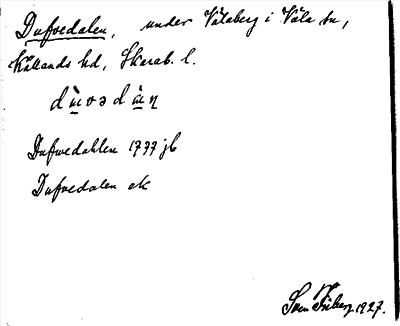 Dufvedalen, under Valaberg i Väla sn,
Kållands hd, Skarab. l.
dùvədàn
Dufwedahlen 1777 jb
Dufvedalen ek
Sven Friberg 1927.